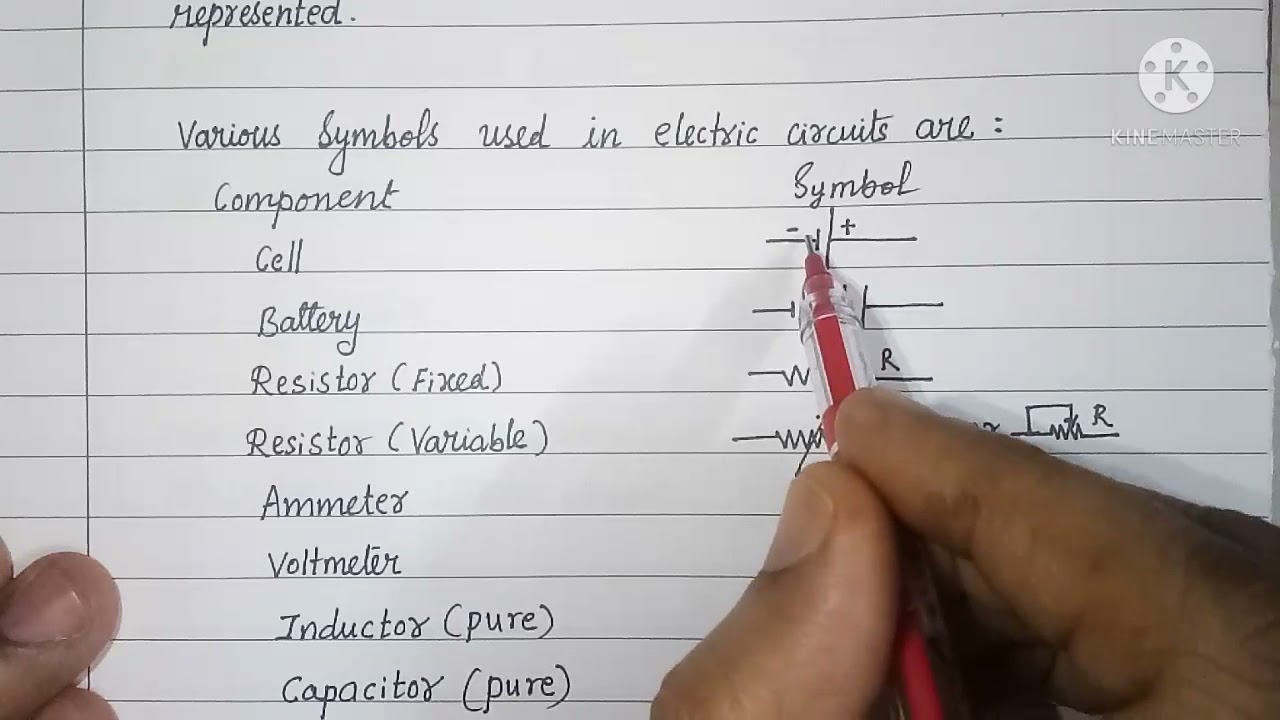 represented.
K
KINEMASTER
Various Symbols used in electric circuits are :
Component Symbol
Cell - +
Battery
Resistor (Fixed) R
Resistor (Variable) R
Ammeter
Voltmeter
Inductor (pure)
Capacitor (pure)